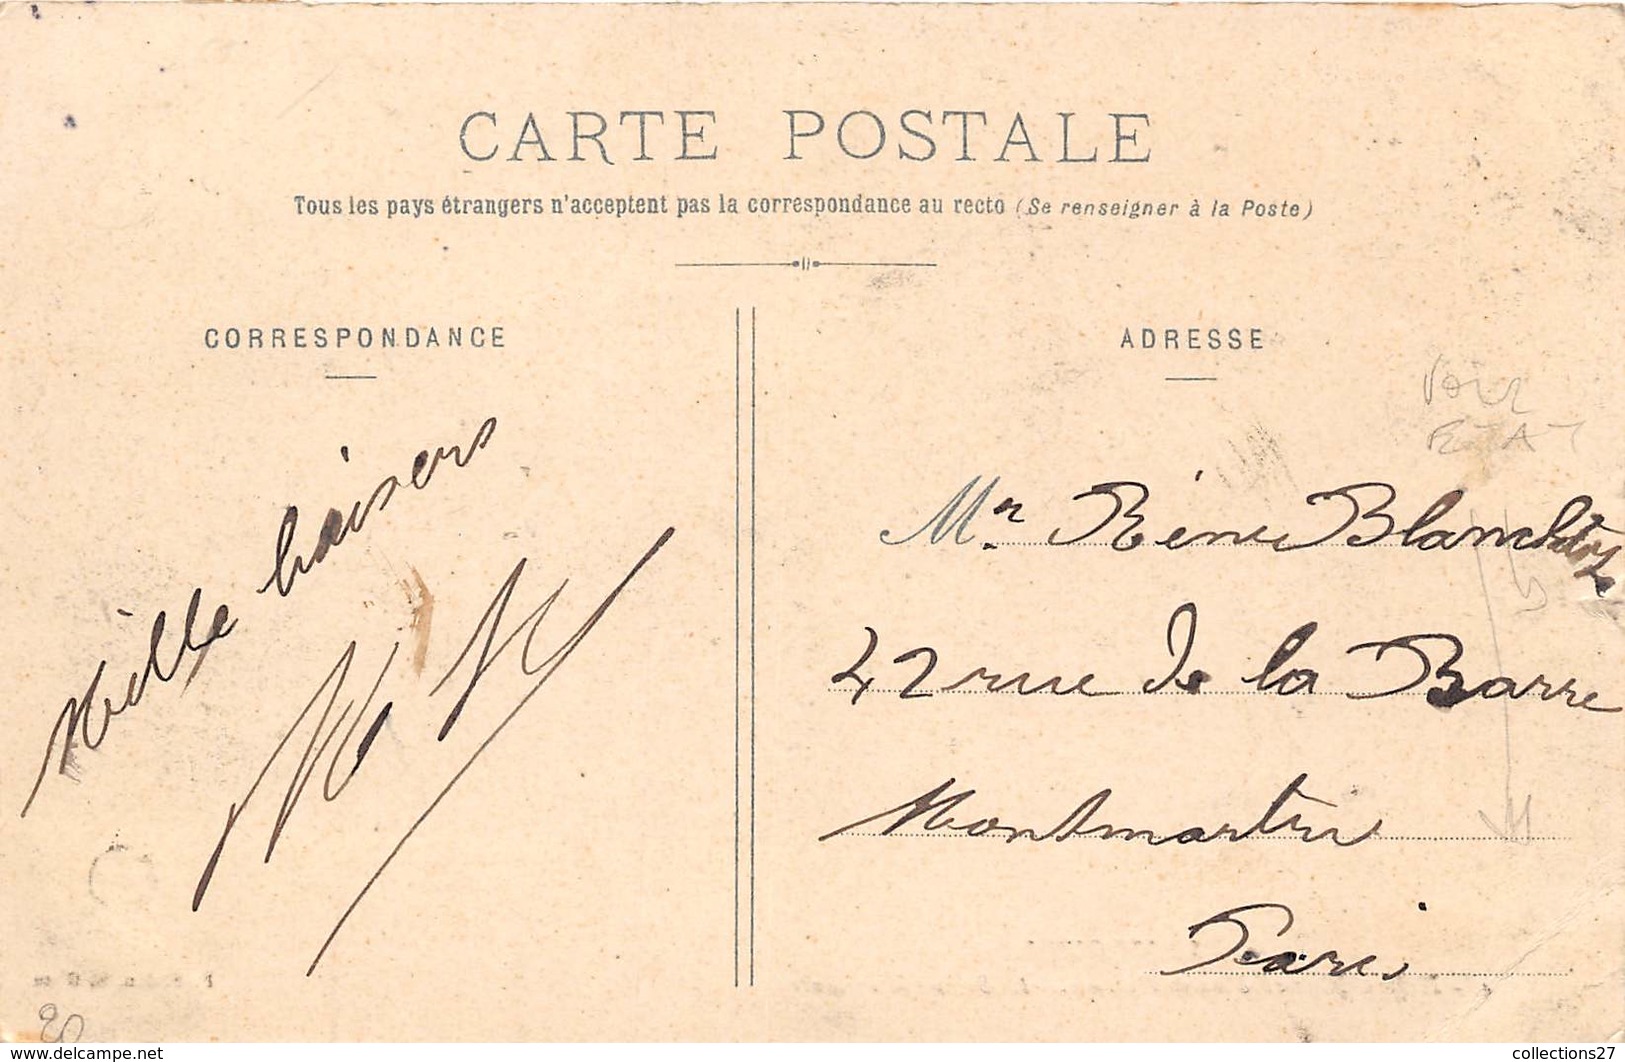 CARTE POSTALE
Tous les pays étrangers n'acceptent pas la correspondance au recto (Se renseigner à la Poste)
CORRESPONDANCE
Mille baisers
ADRESSE
VOIR
ETAT
Mr Réné
42 rue de la Barre
Montmartre
Paris
20
www.delcampe.net
collections27